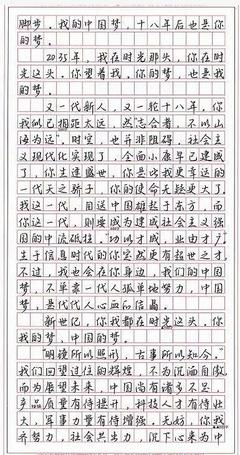 脚步。我的中国梦，十八年后也是你
的梦。
2035年，我在时光那头，你在时
光这头。你望着我，你的梦，也是我
的梦。
又一代新人，又一轮十八年，你
我似已相距太远。然志合者，不以山
海为远。时空，也并非阻碍。社会主
义现代化实现了，全面小康早已建成
了，你生逢盛世，你是比我更幸运的
一代天之骄子，你的使命无疑更大了
我这一代，目送中国雄起于东方，而
你这一代，则要成为建成社会主义强
国的中流砥柱。功以才成，业由才广
生于信息时代的你突然更有超世之才
不过，我也会在你身边，我们的中国
梦，不单靠一代人孤单地努力，中国
梦，是代代人心血的结晶
新世纪，你我都在时光这头，你
我的梦，中国的梦。
"明镜所以照形，古事所以知今。"
我们回望过往的辉煌，不为沉湎自傲
而为展望未来，中国尚有诸多不足，
产品质量有待提升，科技人才有待壮
大，军事力量有待增强，无妨，你我
齐努力，社会共出力，沉下心来为中